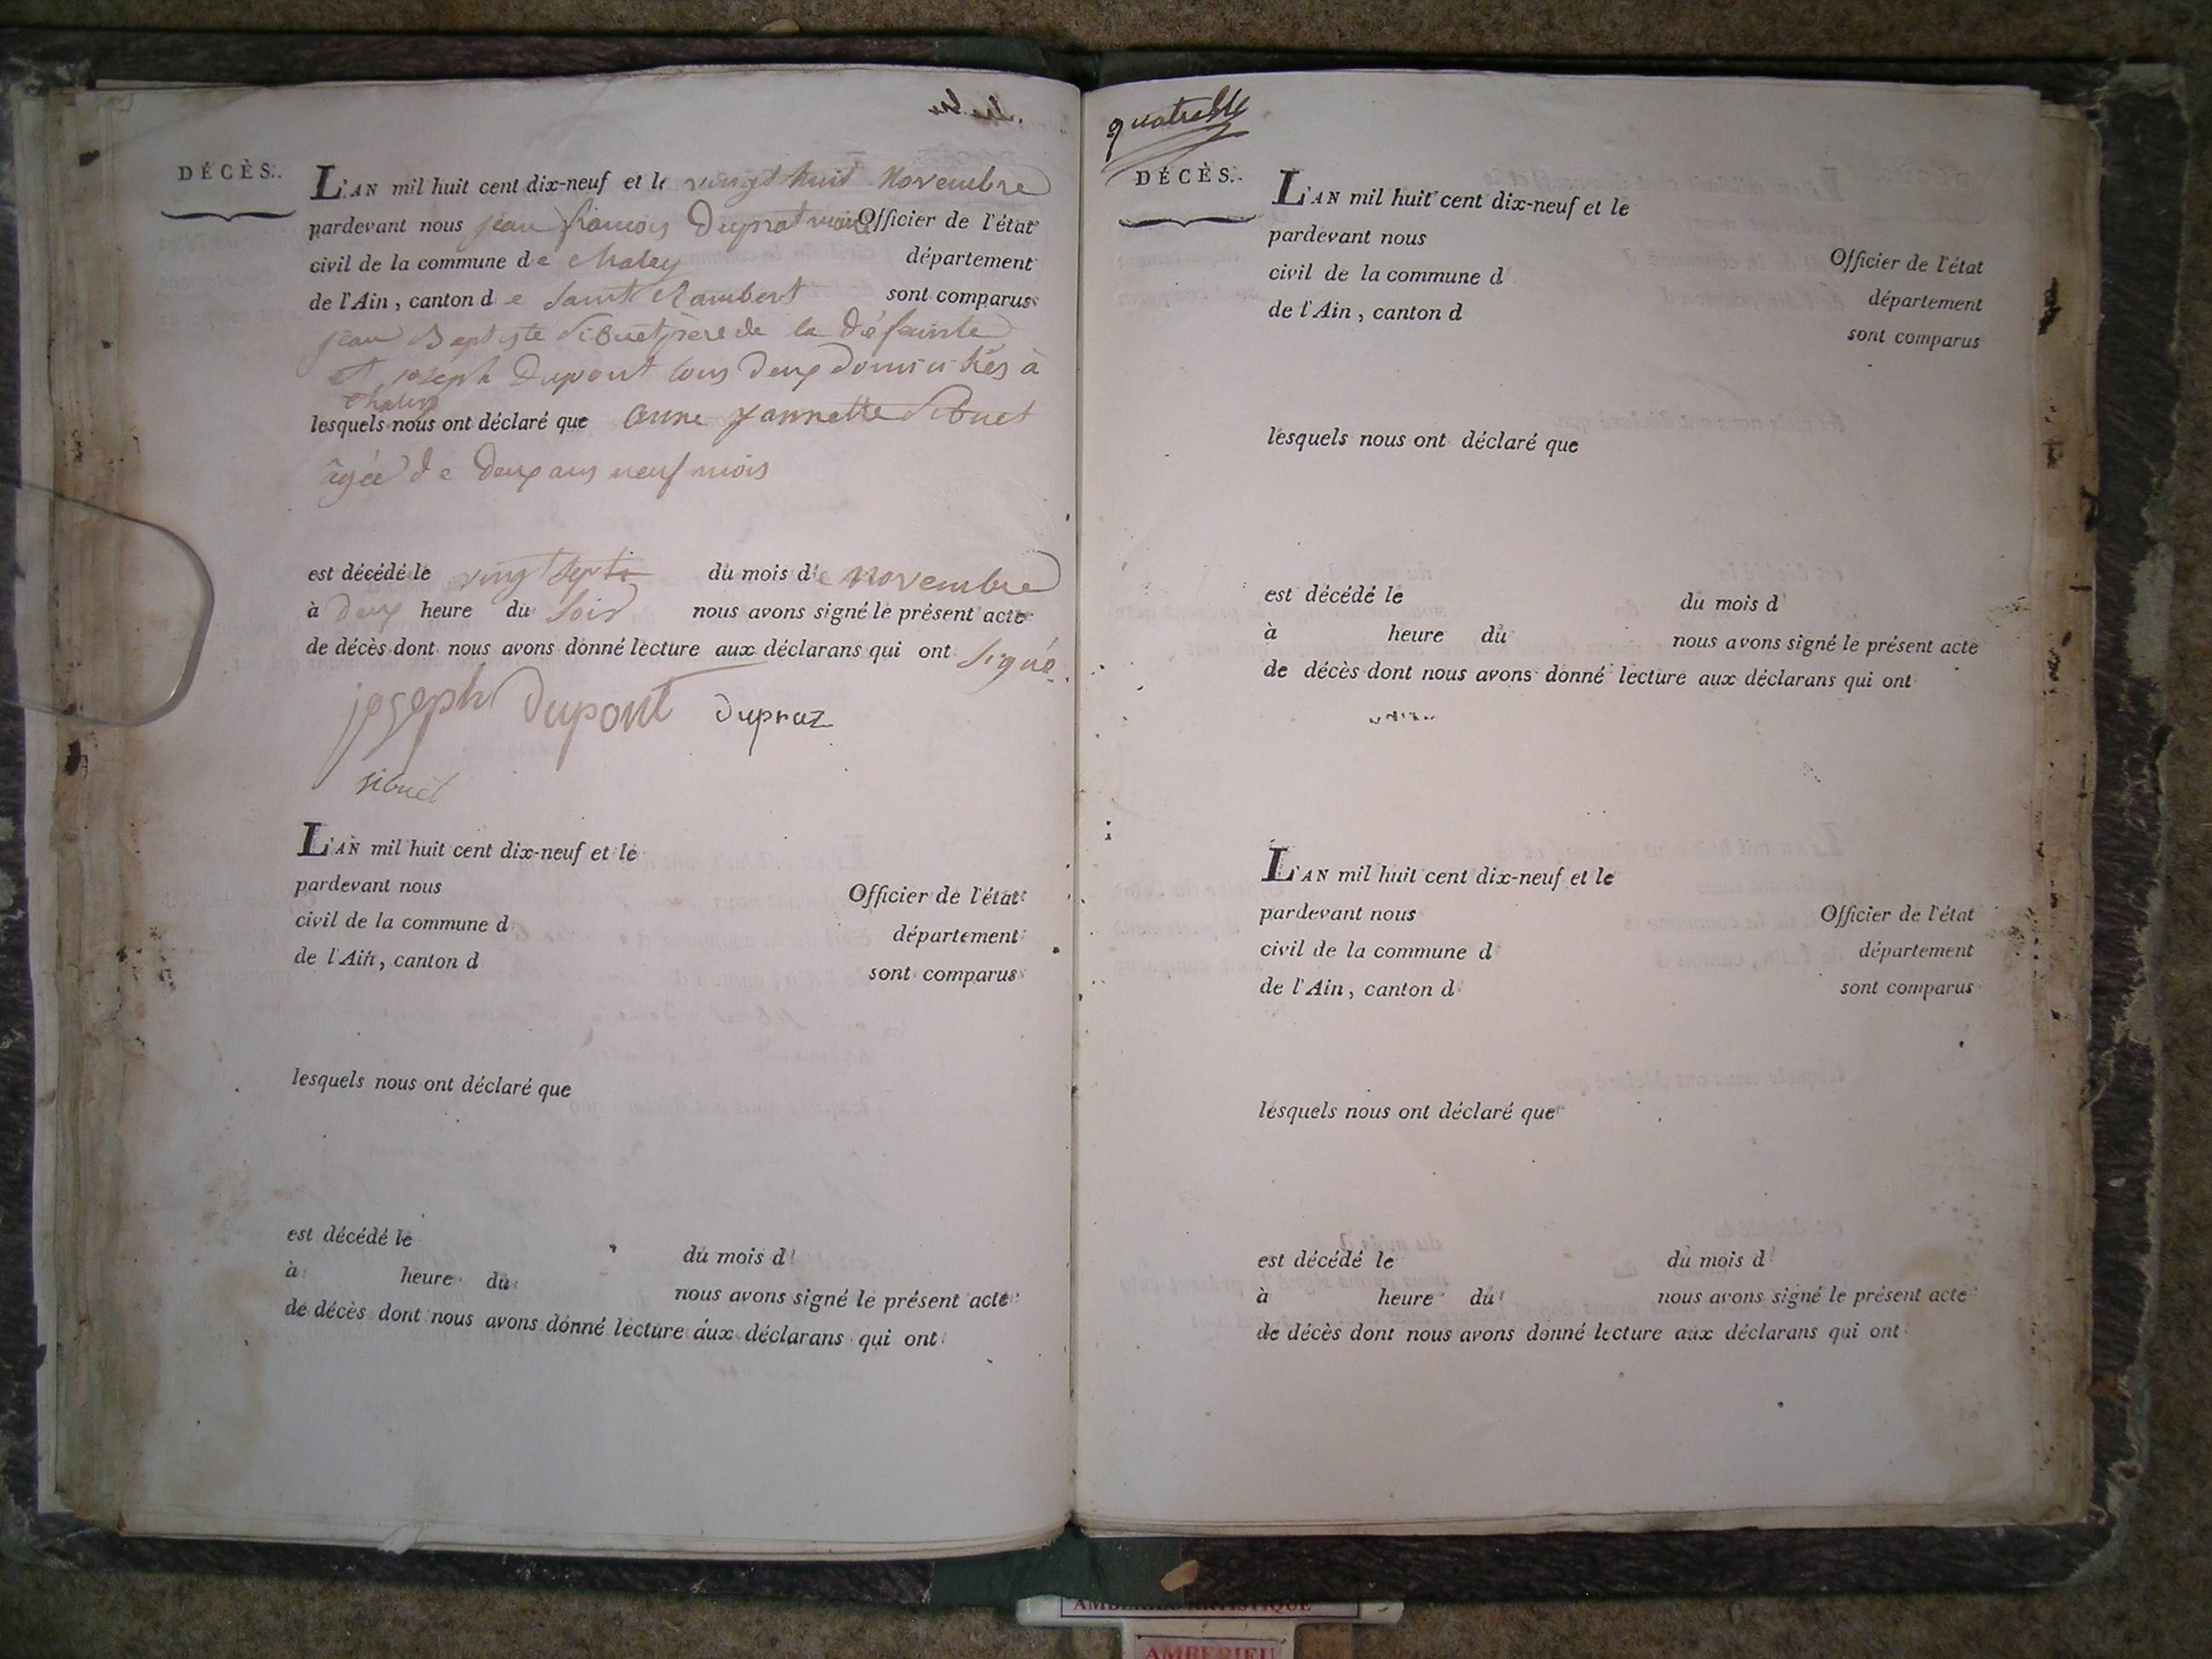 DÉCÈS.
L'AN mil huit cent dix-neuf et le vingt huit Novembre
pardevant nous jean francois Duprat maire Officier de l'état
civil de la commune de Chaley département
de l'Ain, canton de Saint Rambert sont comparus
jean Baptiste Sibuet père de la défainte
et joseph Dupont tous deux domiciliés à
Chaley
lesquels nous ont déclaré que anne jannette Sibuet
âgée de deux ans neuf mois
est décédé le vingt sept du mois de novembre
à deux heure du soir nous avons signé le présent acte
de décès dont nous avons donné lecture aux déclarans qui ont signé
joseph Dupont Dupraz
sibuet
L'AN mil huit cent dix-neuf et le
pardevant nous Officier de l'état
civil de la commune d département
de l'Ain, canton d sont comparus
lesquels nous ont déclaré que
est décédé le du mois d
à heure du nous avons signé le présent acte
de décès dont nous avons donné lecture aux déclarans qui ont
DÉCÈS.
L'AN mil huit cent dix-neuf et le
pardevant nous Officier de l'état
civil de la commune d département
de l'Ain, canton d sont comparus
lesquels nous ont déclaré que
est décédé le du mois d
à heure du nous avons signé le présent acte
de décès dont nous avons donné lecture aux déclarans qui ont
L'AN mil huit cent dix-neuf et le
pardevant nous Officier de l'état
civil de la commune d département
de l'Ain, canton d sont comparus
lesquels nous ont déclaré que
est décédé le du mois d
à heure du nous avons signé le présent acte
de décès dont nous avons donné lecture aux déclarans qui ont
AMBERIEU